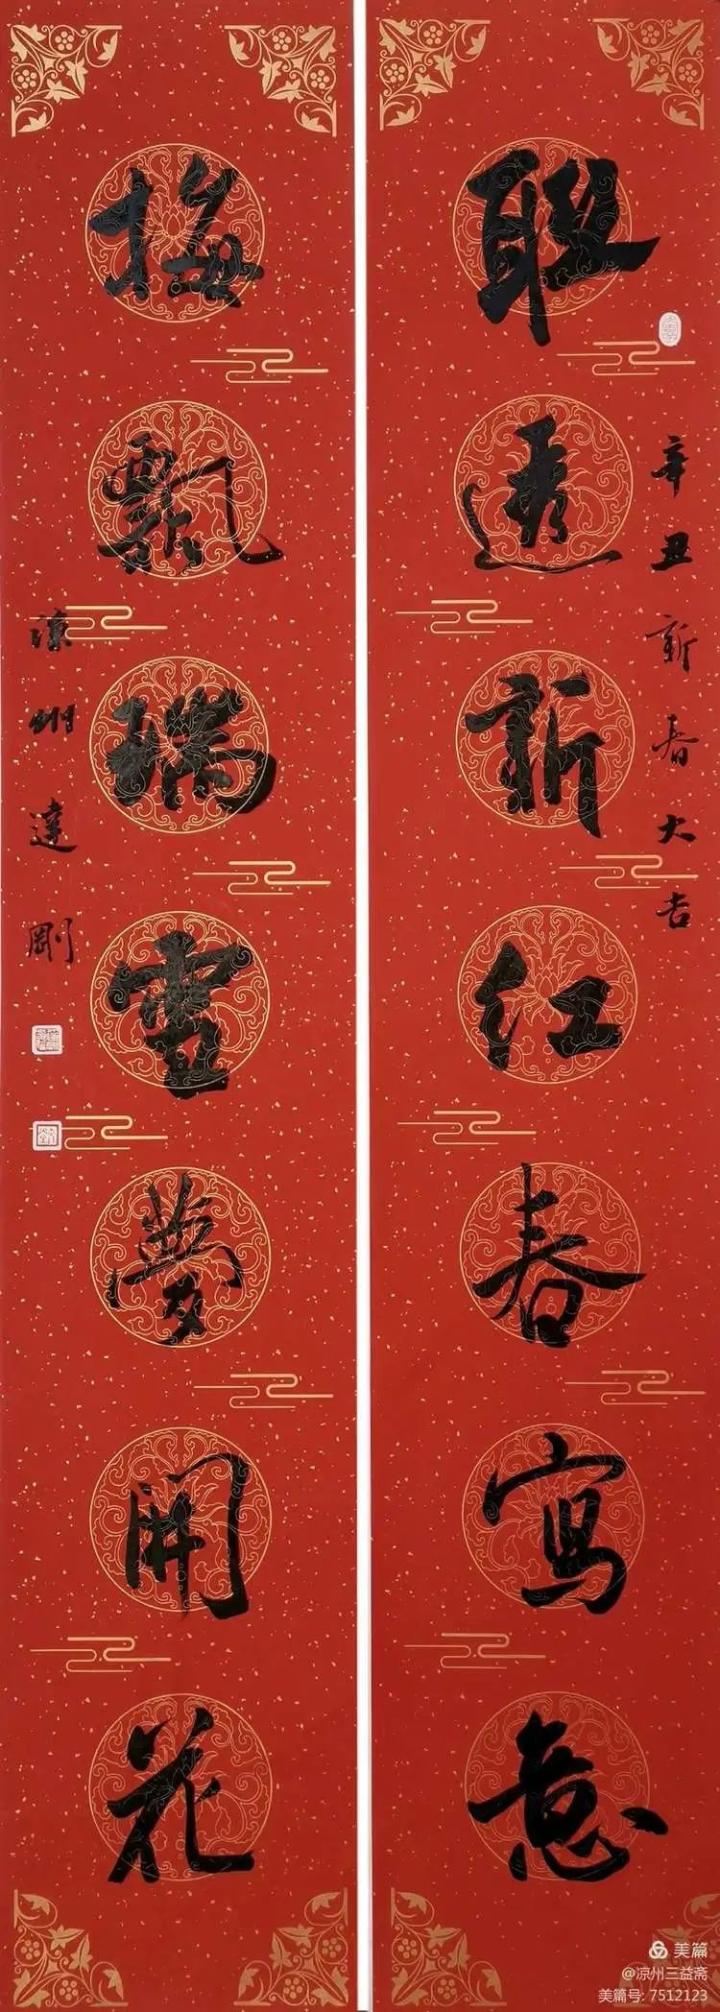 联透新红春寫意
辛丑新春大吉
梅飄瑞雪夢開花
凉州達剛
美篇
@凉州三益斋
美篇号: 7512123